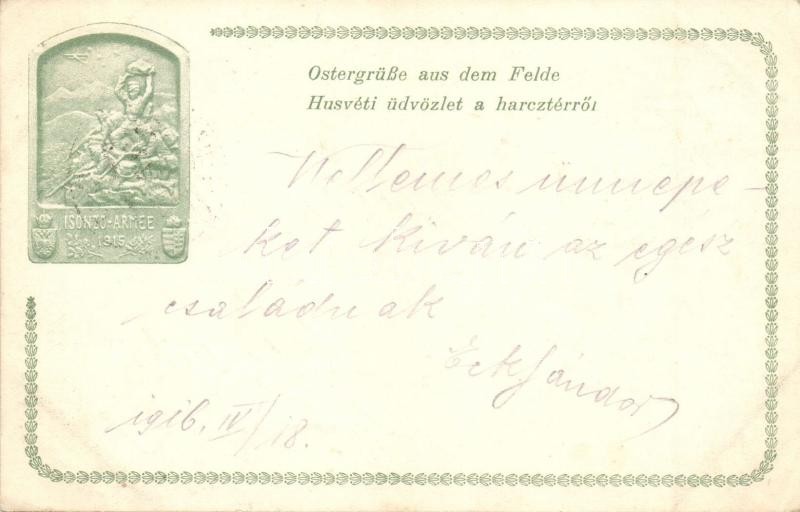 Ostergrüße aus dem Felde
Husvéti üdvözlet a harcztérről
ISONZO-ARMEE
1915
Kellemes ünnepe-
ket kiván az egész
családnak
Sándor
1916. IV/18.